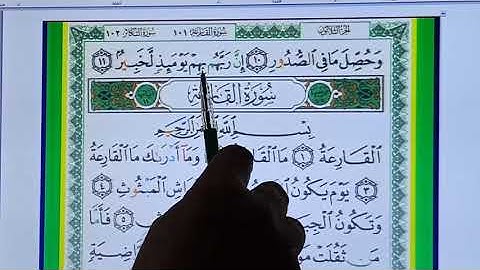 الجزء الثلاثون سورة القارعة ١٠١ سورة التكاثر ١٠٢
وَحُصِّلَ مَا فِي الصُّدُورِ ١٠ إِنَّ رَبَّهُم بِهِمْ يَوْمَئِذٍ لَّخَبِيرٌ ١١
سُورَةُ القَارِعَةِ
بِسْمِ اللَّهِ الرَّحِيمِ
الْقَارِعَةُ ١ مَا وَمَا أَدْرَىٰكَ مَا الْقَارِعَةُ
٣ يَوْمَ يَكُونُ الْمَبْثُوثِ ٤
وَتَكُونُ ٥ فَأَمَّا
مَن ثَقُلَتْ